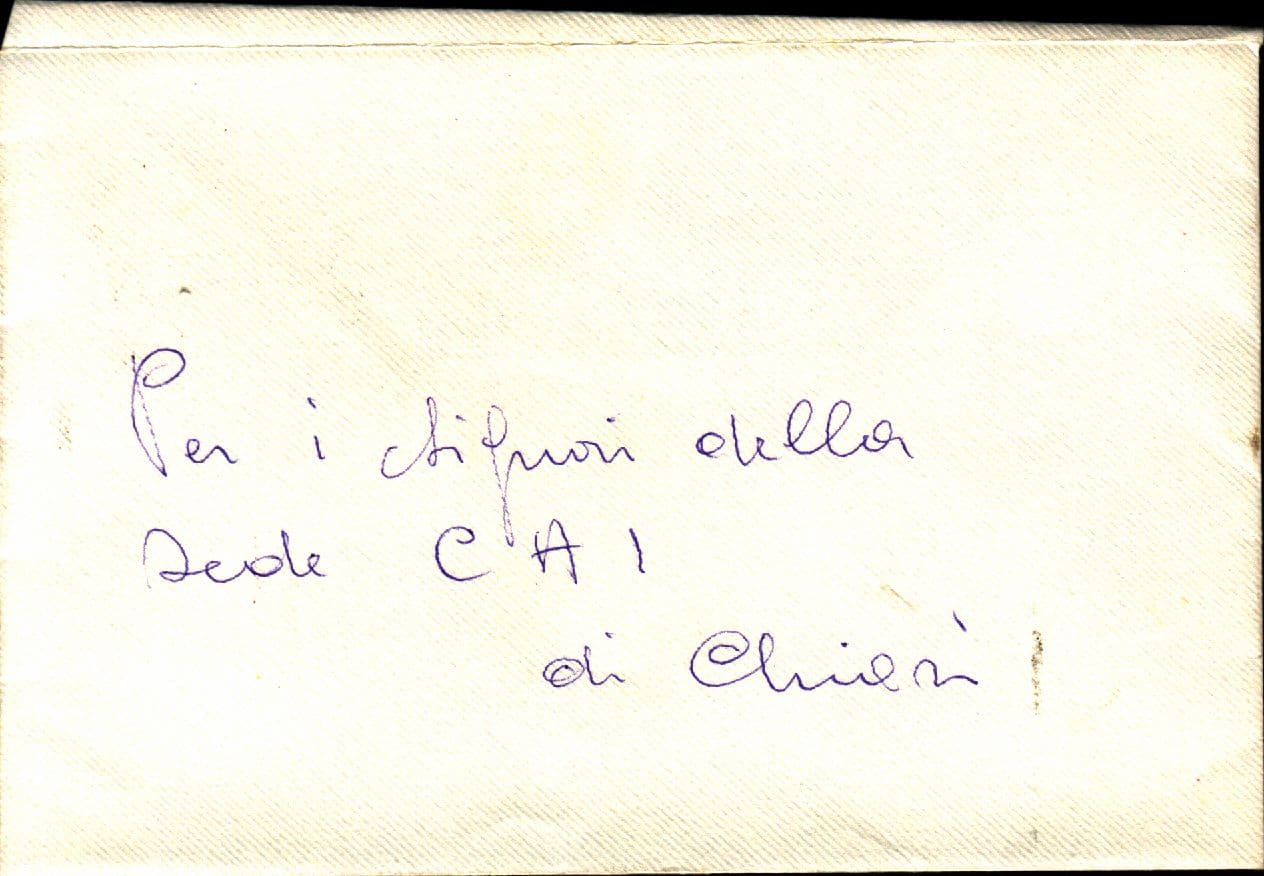 Per i Signori della
sede C A I
di Chierì